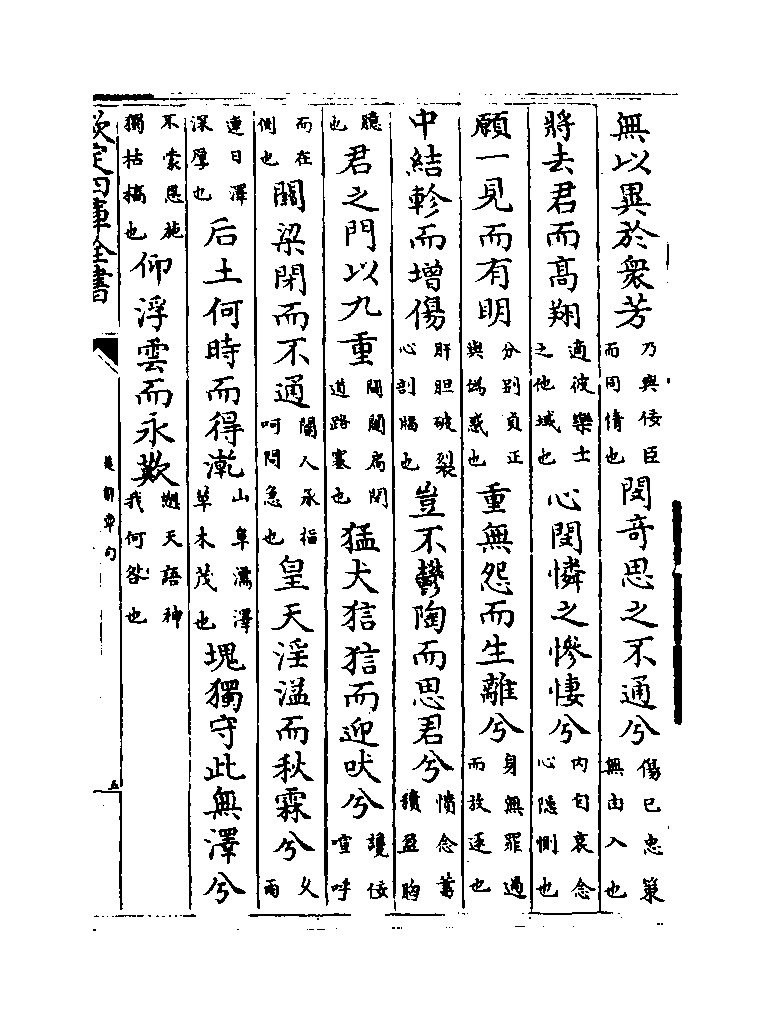 無以異於衆芳乃與佞臣而同情也閔奇思之不通兮傷已忠策無由入也
將去君而高翔適彼樂土之他域也心閔憐之慘悽兮內自哀念心隱惻也
願一見而有明分別貞正與僞惑也重無怨而生離兮身無罪過而放逐也
中結軫而增傷肝胆破裂心剖𦠆也豈不鬱陶而思君兮憤念蓄積盈胸
臆也君之門以九重閶闔扃閉道路塞也猛犬狺狺而迎吠兮讒佞喧呼
而在側也關梁閉而不通閽人承指呵問急也皇天淫溢而秋霖兮久雨
連日澤深厚也后土何時而得漧山阜濡澤草木茂也塊獨守此無澤兮
不蒙恩施獨枯槁也仰浮雲而永歎愬天語神我何咎也
欽定四庫全書
楚辭章句
五